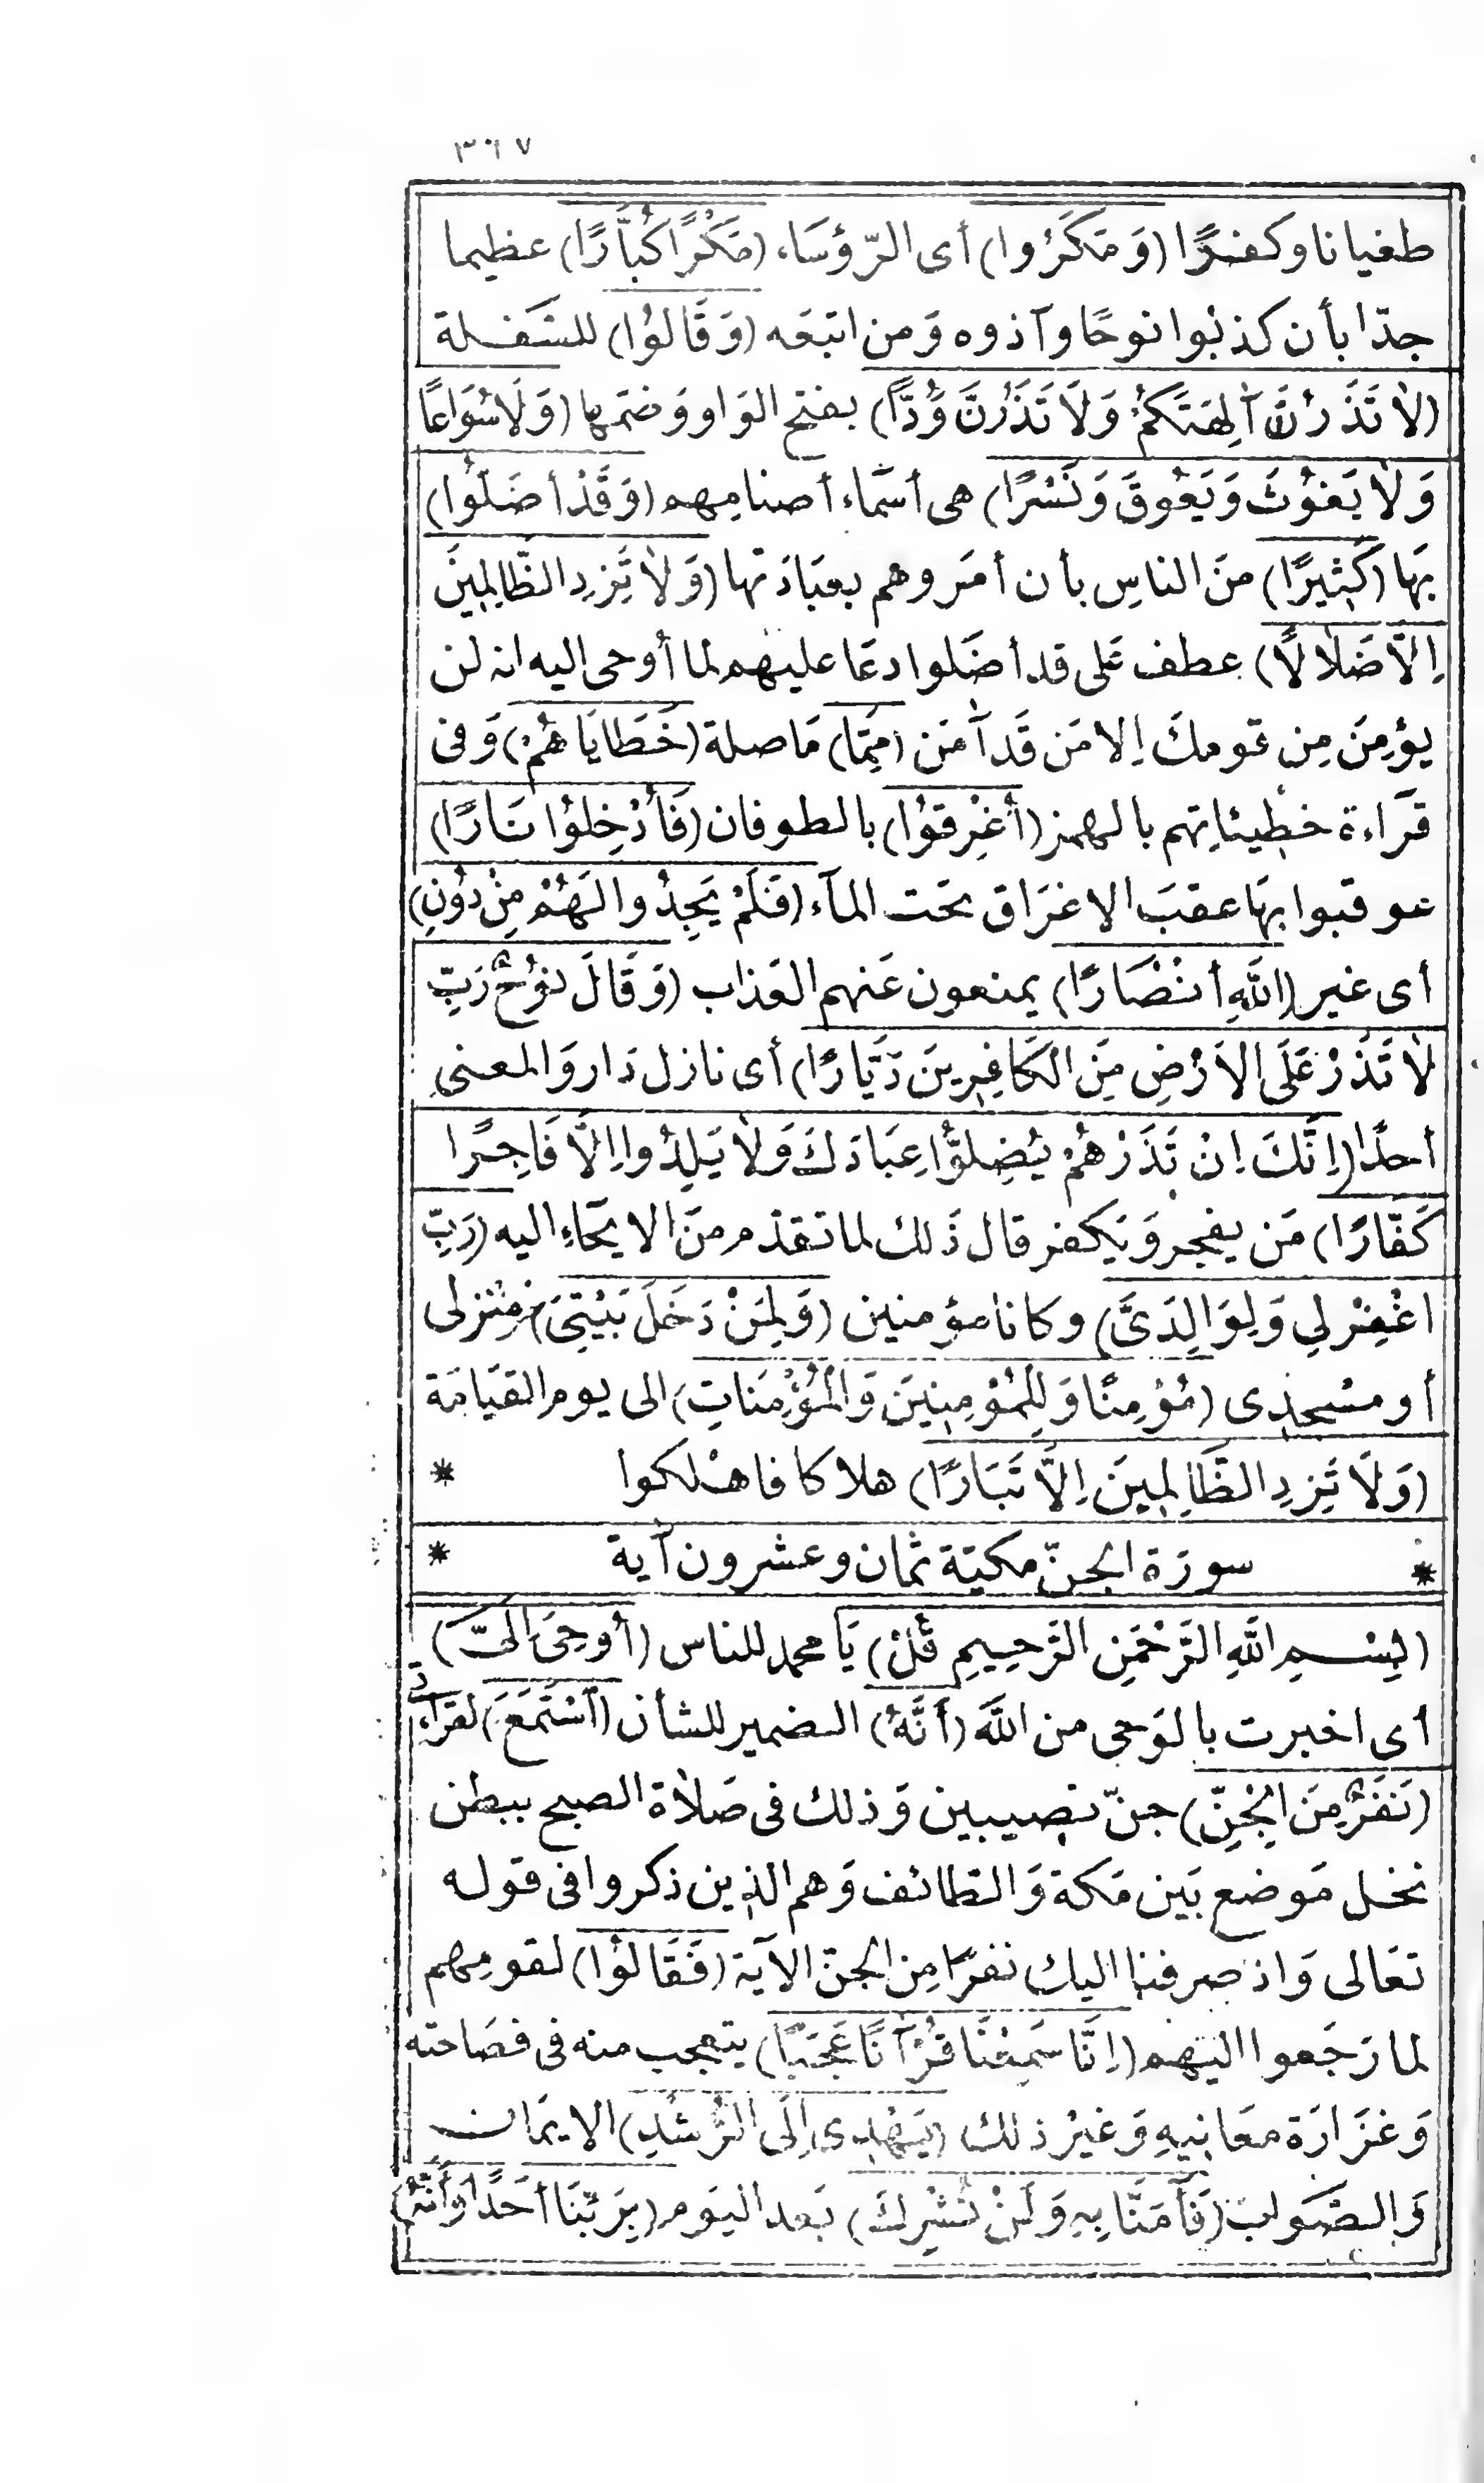 ٣٦٧
طغيانا وكفرًا (وَمَكَرُوا) أى الرّؤسَاء (مَكْرًا كُبَّارًا) عظيما
جدّا بأن كذبُوا نوحًا وآذوه وَمن اتبعَه (وَقَالُوْا) للسَفلة
(لاٰ تَذَرُنَّ آلِهَتَكُمْ وَلَا تَذَرُنَّ وُدًّا) بفتح الوَاو وَضمّها (وَلَا سُوَاعًا
وَلاٰ يَغوُثَ وَيَعُوقَ وَنَسْرًا) هى أسمَاء أصنامِهم (وَقَدْ أضَلّوُا)
بهَا (كَثِيرًا) منَ الناسِ بأن أمَروهم بعبَادَتها (وَلاٰ تَزِدِ الظّالِمِينَ
اِلاَّ ضَلاٰلاً) عطف عَلى قد أضَلوا دعَا عليهم لما أوحى اليه انه لن
يؤمِنَ مِن قومكَ اِلا مَن قَد آمَن (مِمَّا) مَا صلة (خَطَايَاهُمْ) وَفى
قرَاءة خطيئاتِهم بالهمز (أُغْرِقوُا) بالطوفان (فَأُدْخِلوُا نَارًا)
عوقبوا بهَا عقبَ الاغرَاق تحَت المآء (فَلَمْ يَجِدُوا لَهُمْ مِنْ دُوُنِ)
أى غير (اللَّهِ أنْصَارًا) يمنعون عَنهم العَذاب (وَقَالَ نوُحٌ رَبِّ
لاٰ تَذَرْ عَلَى الاَرْضِ مِنَ الْكَافِرِينَ دَيَّارًا) أى نازل دَار وَالمعنى
أحدًا (اِنَّكَ اِنْ تَذَرْهُمْ يُضِلوُّا عِبَادَكَ وَلاٰ يَلِدُوا اِلاَّ فَاجِرًا
كَفّارًا) مَن يفجر وَيَكفر قال ذَلك لما تقدّم منَ الايحَاءِ اليه (رَبِّ
اغْفِرْ لِي وَلِوَالِدَىَّ) وكانا مؤمنين (وَلِمَنْ دَخَلَ بَيْتِىَ) مِنزلى
أو مسْجدى (مُؤمِنًا وَلِلْمُؤمِنِينَ وَالْمُؤْمِنَاتِ) الى يوم القيَامَة
(وَلَا تَزِدِ الظَّالِمِينَ اِلاَّ تَبَارًا) هلاكا فاهْلكوا *
* سورَة الجنّ مكيّة ثمان وعشرون آية *
(بِسْمِ اللَّهِ الرَّحْمَنِ الرَّحِيمِ قُلْ) يَا محمد للناس (أوحِىَ اِلَىَّ)
أى اخبرت بالوَحى من اللَّه (أَنَّهُ) الضمير للشأن (اسْتَمَعَ) لقرَاءتى
(نَفَرٌ مِنَ الْجِنِّ) جنّ نصيبين وَذلك فى صَلاٰة الصبح ببطن
نخل مَوضع بَين مَكة وَالطائف وَهم الذين ذكروا فى قوله
تعَالى وَاذ صرفنا اليك نفرًا مِن الجنّ الآيَة (فَقَالوُا) لقومِهم
لما رَجَعوا اليهم (اِنَّا سَمِعْنَا قُرْآنًا عَجَبًا) يتعجب منه فى فصَاحته
وَغزَارَة معَانيهِ وَغيرُ ذلك (يَهْدِى اِلَى الرُّشْدِ) الايمَان
وَالصّوَاب (فَآمَنَّا بِهِ وَلَنْ نُشْرِكَ) بَعد اليَوم (بِرَبِّنَا أحَدًا وَأَنَّهُ)